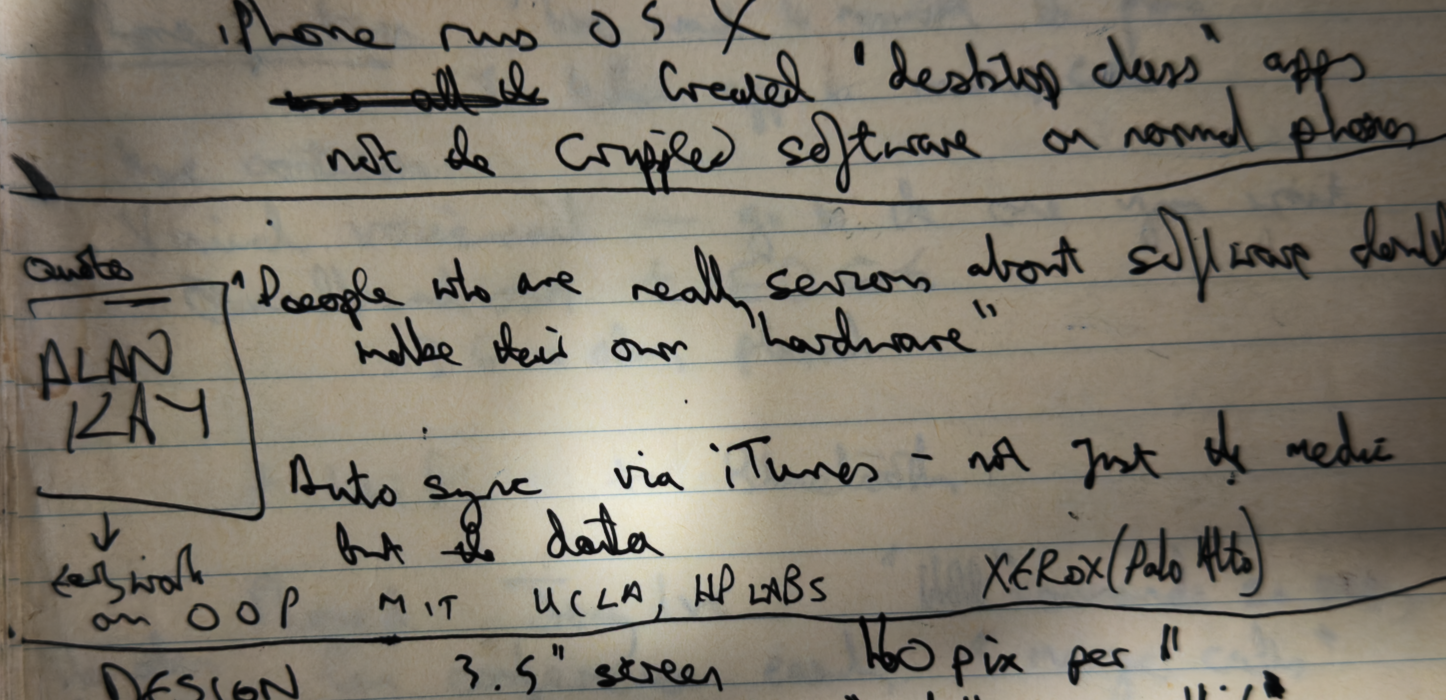 iPhone runs OS X
Created "desktop class" apps
not the crippled software on normal phones
Quotes
"People who are really serious about software should
make their own hardware"
ALAN
KAY
Auto sync via iTunes - not just the media
but the data
early work
on OOP MIT UCLA, HP LABS XEROX (Palo Alto)
DESIGN 3.5" screen 160 pix per "